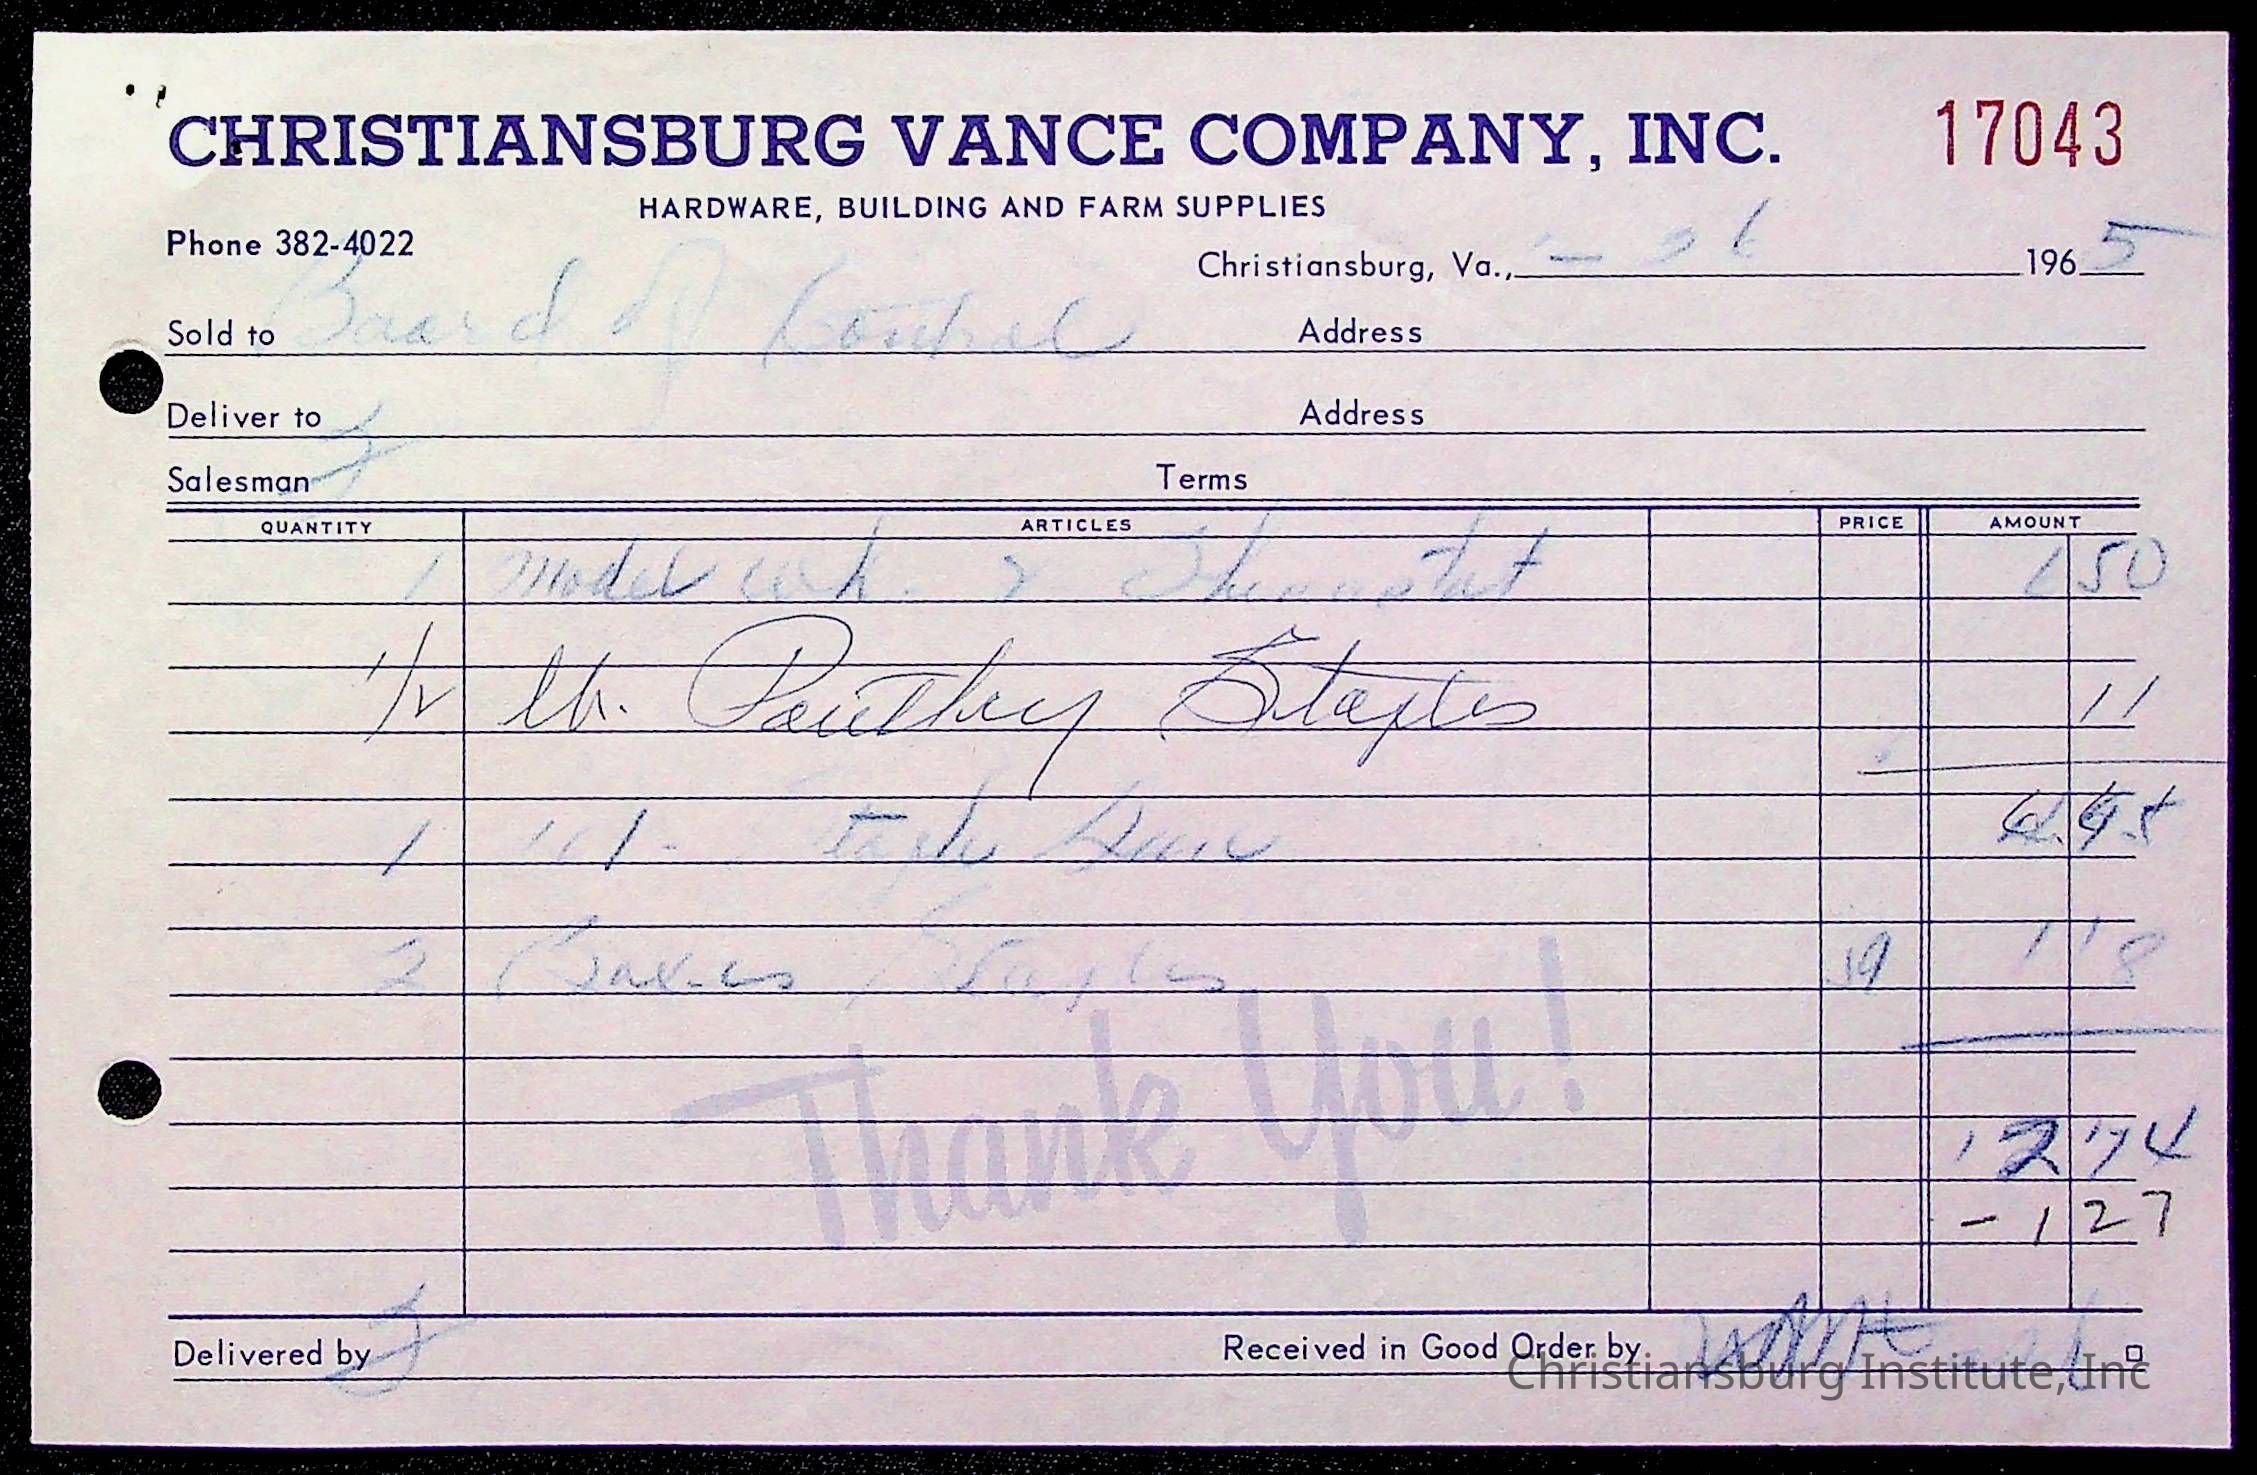 CHRISTIANSBURG VANCE COMPANY, INC. 17043
HARDWARE, BUILDING AND FARM SUPPLIES
Phone 382-4022
Christiansburg, Va., 1965
Sold to Board of Control Address
Deliver to Address
Salesman Terms
QUANTITY ARTICLES PRICE AMOUNT
1 Model Thermostat 1 50
1/2 lb. Poultry Staples 11
1 Staple
2 Boxes Staples 59 1 18
Thank You!
- 1 27
Delivered by Received in Good Order by
Christiansburg Institute, Inc